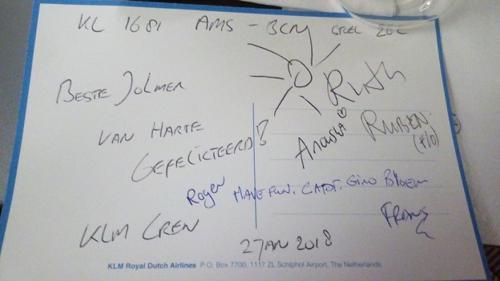 KL 1681 AMS - BCN
BESTE JOLMER
VAN HARTE
GEFELICITEERD!
Ruth
Anouska
RUBEN
(F/O)
Roger
HAVE FUN, CAPT. GINO
FRANS
KLM CREW
27 JAN 2018
KLM Royal Dutch Airlines P.O. Box 7700, 1117 ZL Schiphol Airport, The Netherlands